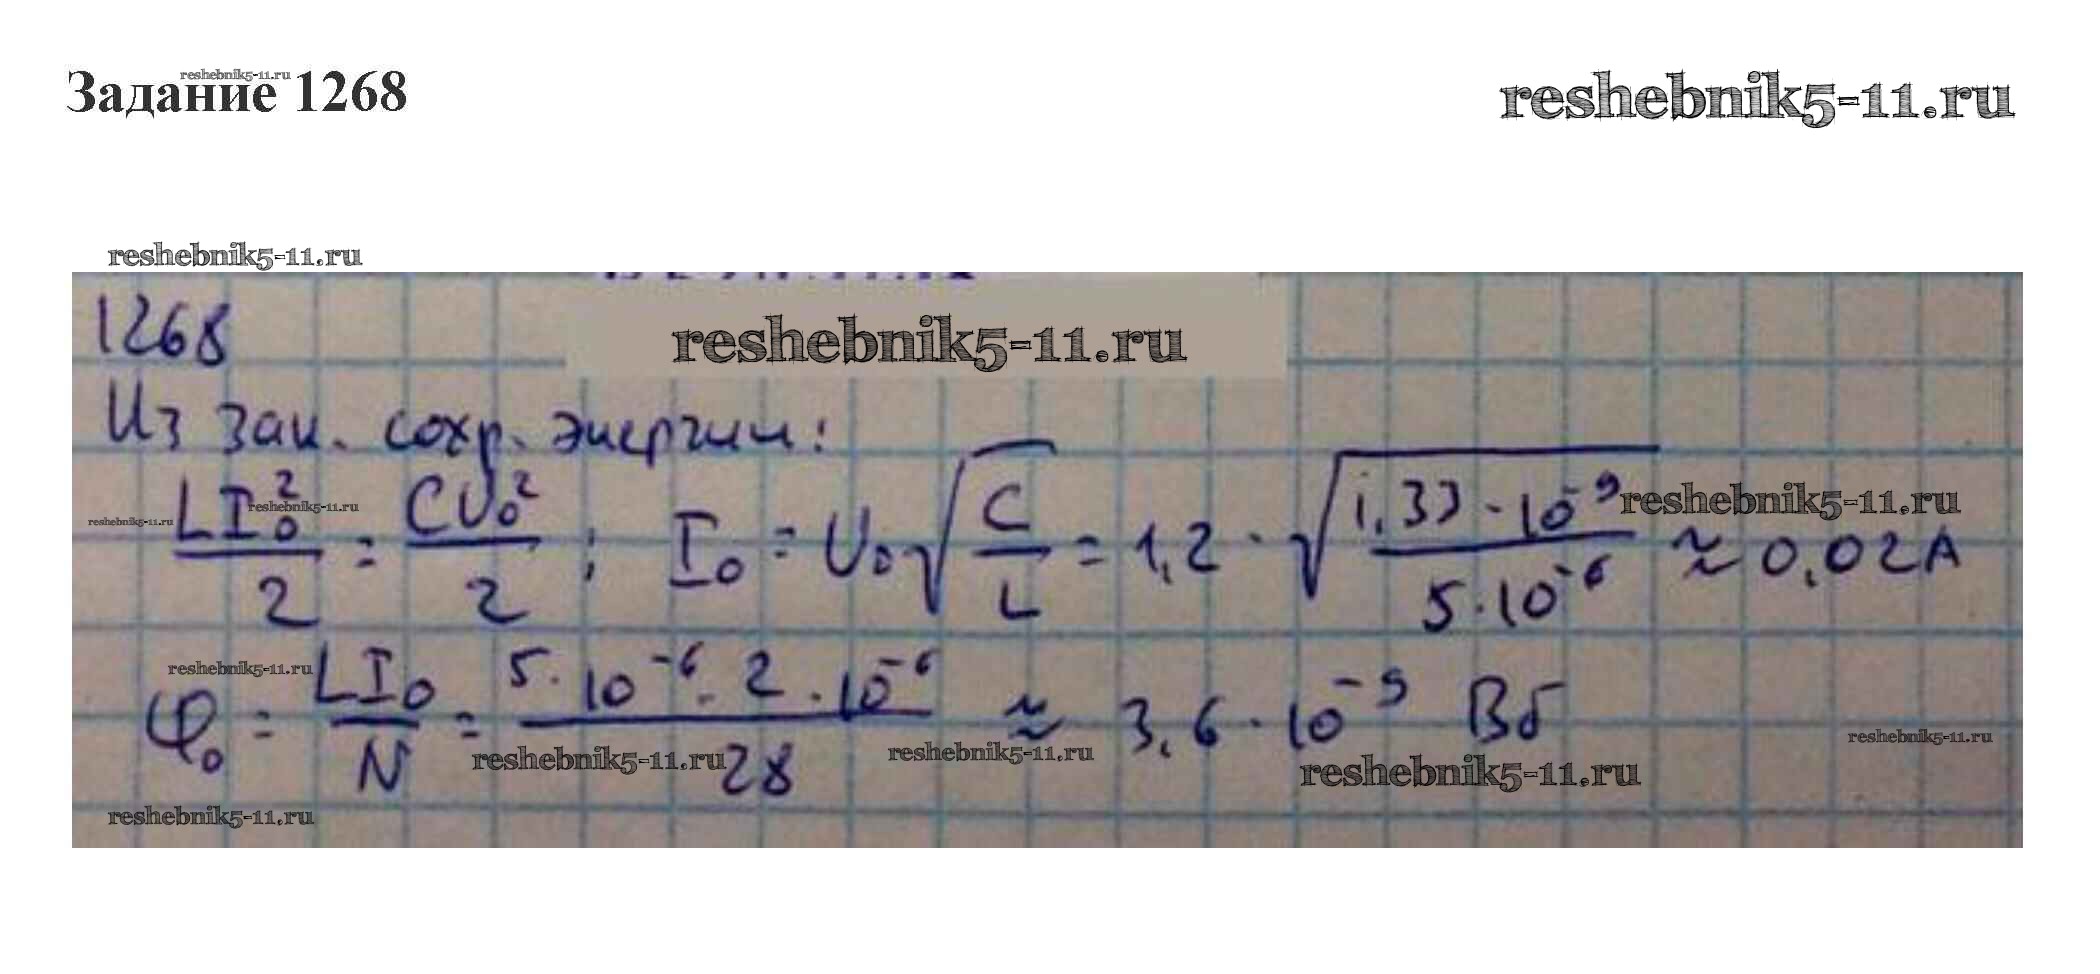 Задание 1268
reshebnik5-11.ru
reshebnik5-11.ru
reshebnik5-11.ru
1268
reshebnik5-11.ru
Из зак. сохр. энергии:
LI₀²/2 = CU₀²/2 ; I₀ = U₀√(C/L) = 1,2 · √(1,33 · 10⁻⁹/5 · 10⁻⁶) ≈ 0,02 А
reshebnik5-11.ru
reshebnik5-11.ru
reshebnik5-11.ru
φ₀ = LI₀/N = 5 · 10⁻⁶ · 2 · 10⁻⁶/28 ≈ 3,6 · 10⁻⁹ Вб
reshebnik5-11.ru
reshebnik5-11.ru
reshebnik5-11.ru
reshebnik5-11.ru
reshebnik5-11.ru
reshebnik5-11.ru